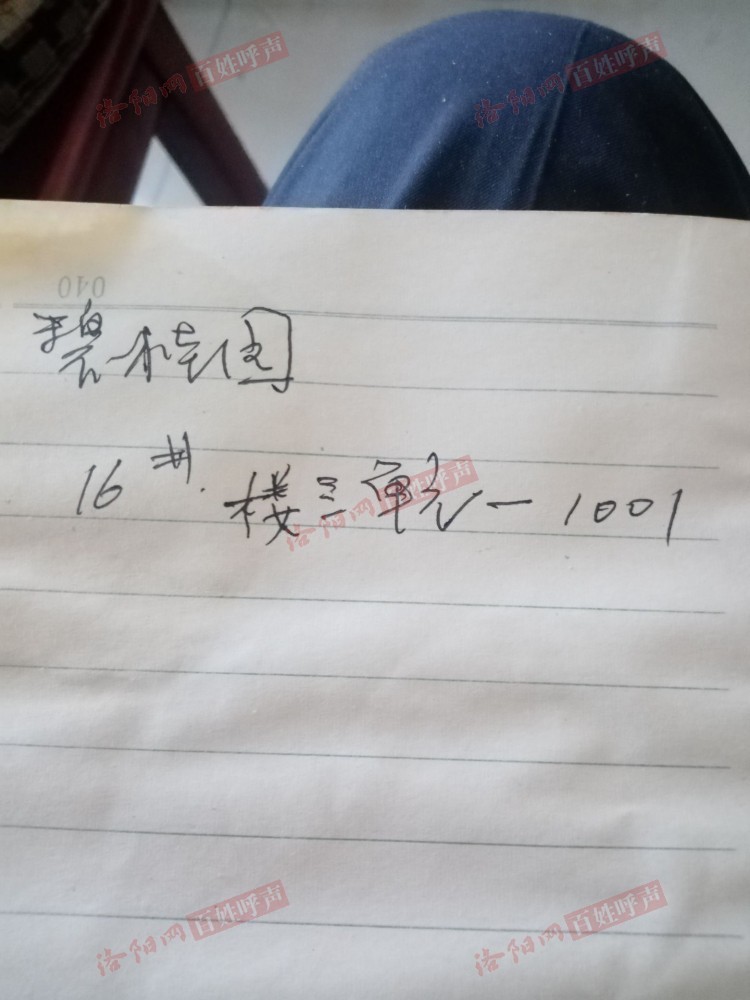 洛阳网百姓呼声
洛阳网百姓呼声
040
碧桂园
16#.楼三单元-1001
洛阳网百姓呼声
洛阳网百姓呼声
洛阳网百姓呼声